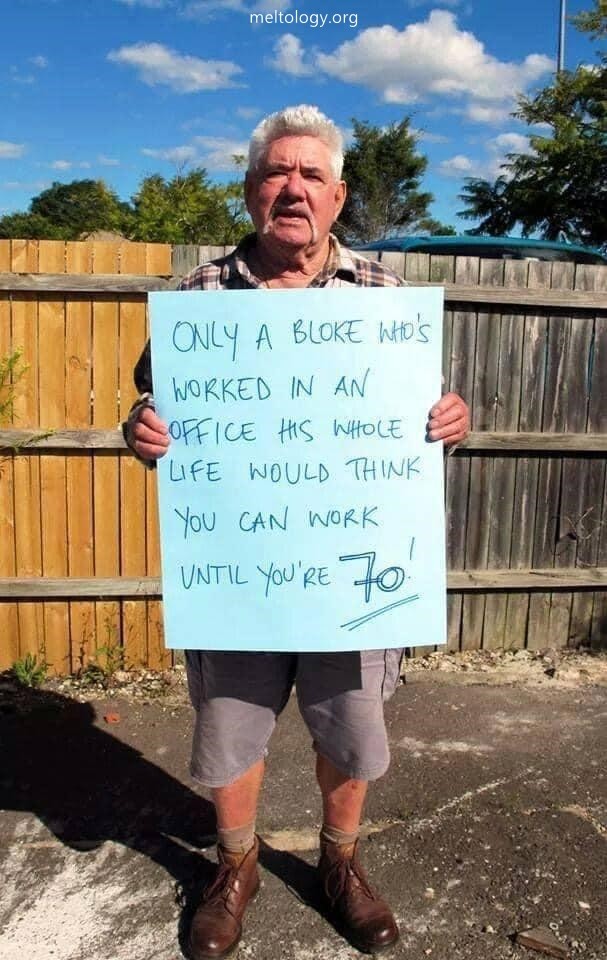 meltology.org
ONLY A BLOKE WHO'S
WORKED IN AN
OFFICE HIS WHOLE
LIFE WOULD THINK
YOU CAN WORK
UNTIL YOU'RE 70!